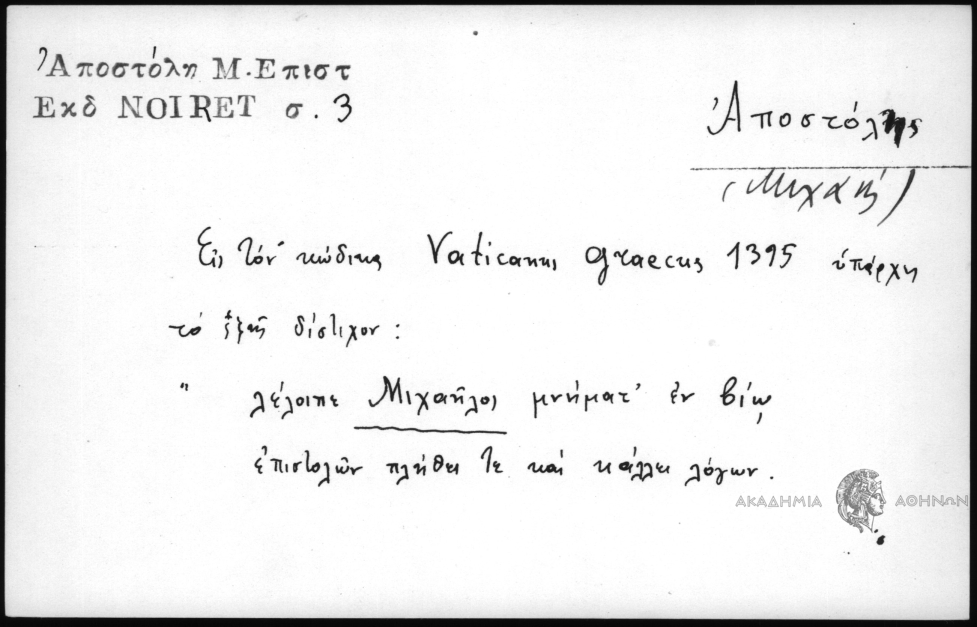 Ἀποστόλη Μ. Επιστ
Εκδ NOIRET σ. 3
Ἀποστόλης
(Μιχαήλ)
Εἰς τόν κώδικα Vaticanus graecus 1395 ὑπάρχει
τό ἑξῆς δίστιχον :
" λέλοιπε Μιχαῆλος μνήματ' ἐν βίῳ
ἐπιστολῶν πλήθει τε καί κάλλει λόγων.
ΑΚΑΔΗΜΙΑ ΑΘΗΝΩΝ